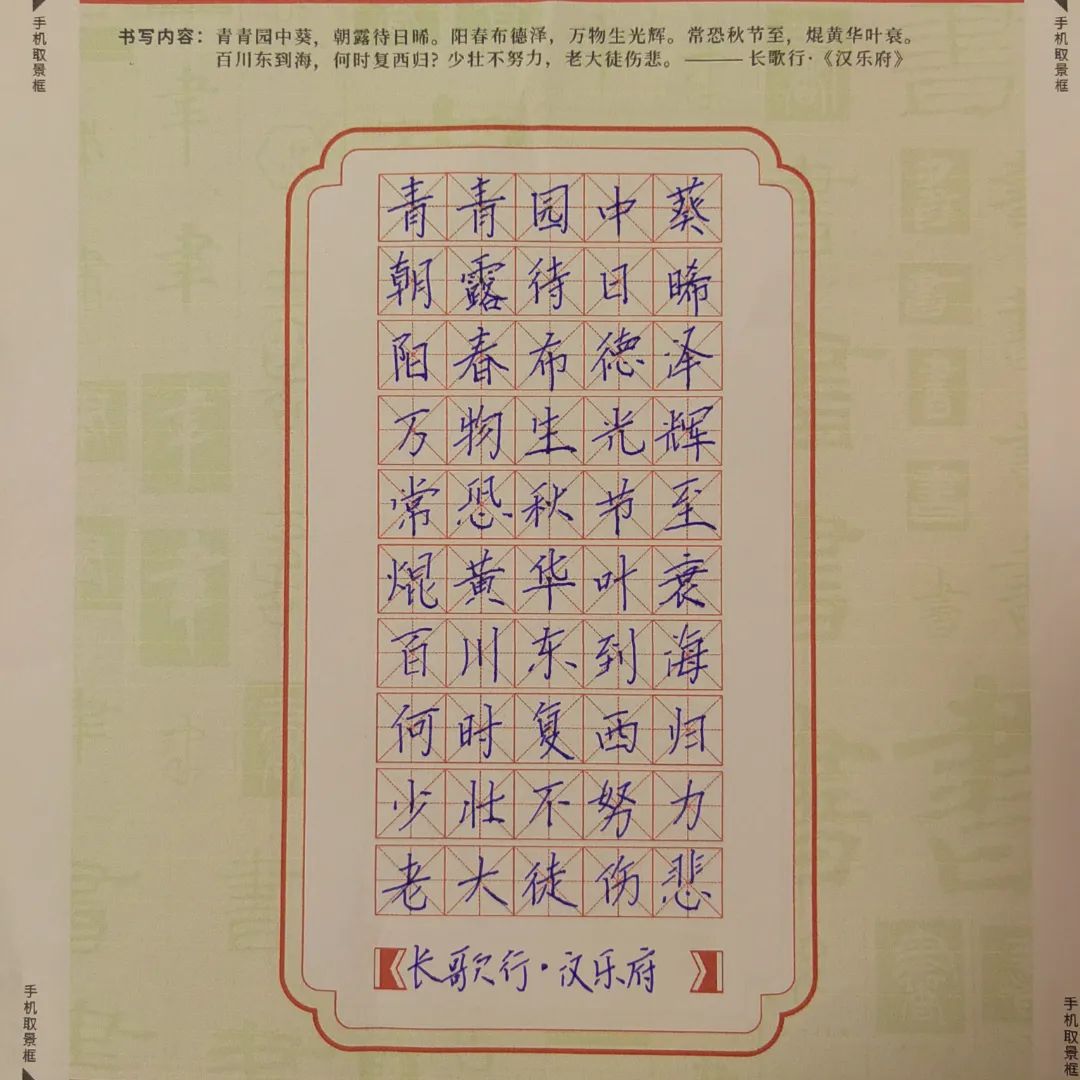 手机取景框
手机取景框
书写内容：青青园中葵，朝露待日晞。阳春布德泽，万物生光辉。常恐秋节至，焜黄华叶衰。
百川东到海，何时复西归？少壮不努力，老大徒伤悲。———长歌行·《汉乐府》
青青园中葵
朝露待日晞
阳春布德泽
万物生光辉
常恐秋节至
焜黄华叶衰
百川东到海
何时复西归
少壮不努力
老大徒伤悲
长歌行·汉乐府
手机取景框
手机取景框